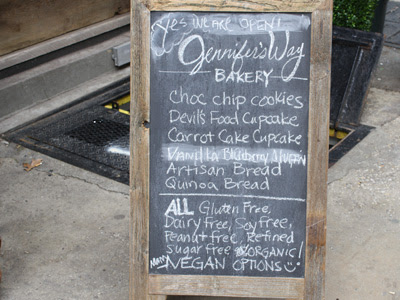 Yes WE ARE OPEN!
Jennifer's Way
BAKERY
Choc chip cookies
Devil's Food Cupcake
Carrot Cake Cupcake
Vanilla Blueberry Muffin
Artisan Bread
Quinoa Bread
ALL Gluten Free,
Dairy free, Soy free,
Peanut free, Refined
Sugar free & ORGANIC!
Many VEGAN OPTIONS